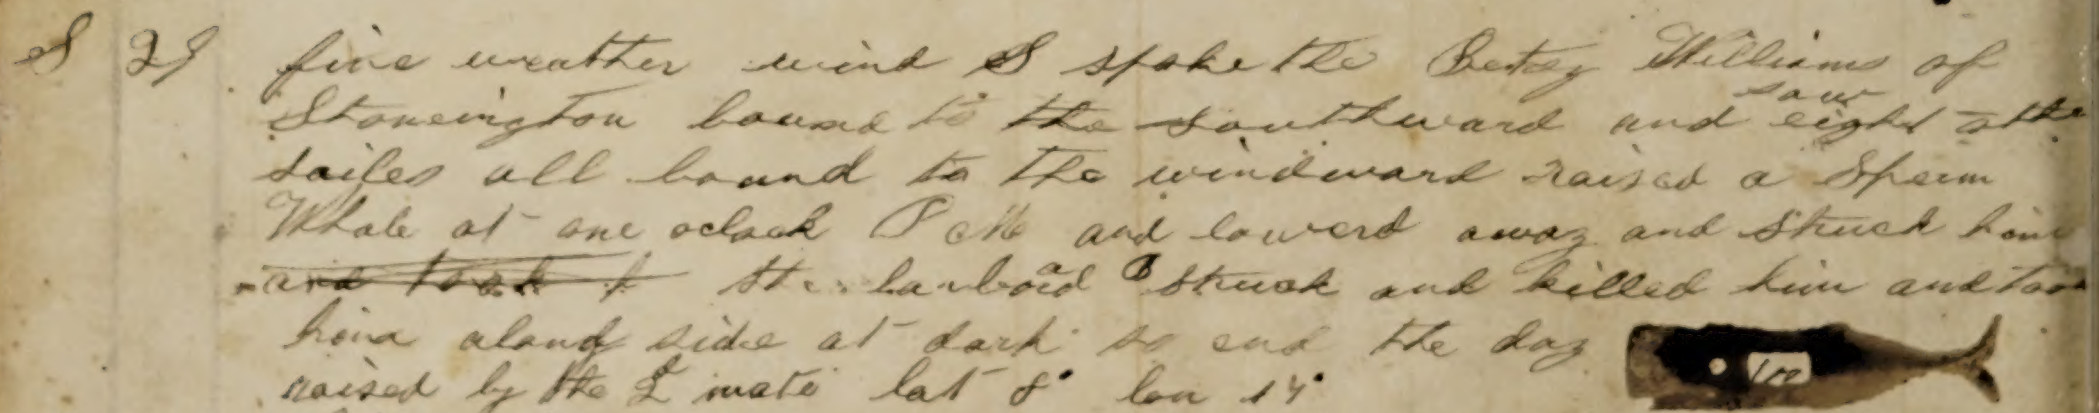 S 29 fine weather wind S spoke the Betsey Williams of
Stoneington bound to the southward and saw eight othe
sailes all bound to the windward raised a Sperm
Whale at one oclock P M and lowerd away and struck him
and took h the larboard B struck and killed him and took
him along side at dark so end the day
raised by the 2 mate lat 8° lon 14°